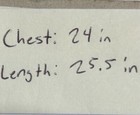 Chest: 24 in
Length: 25.5 in